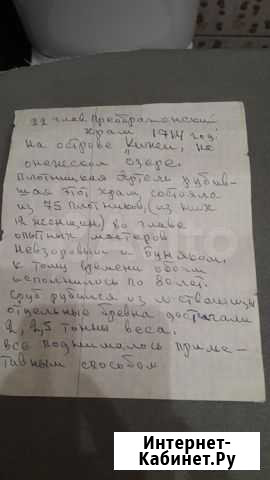 22 глав. Преображенский
храм 1714 год.
на острове Кижи, на
онежском озере.
Плотницкая Артель рубив-
шая этот храм состояла
из 75 плотников, (из них
12 женщин) во главе
опытных мастеров
Невзоровым и Буняком,
к тому времени обоим
исполнилось по 80 лет.
Сруб рубился из лиственницы
отдельные бревна достигали
2, 2,5 тонны веса.
Все поднималось прими-
тивным способом
Интернет-
Кабинет.Ру